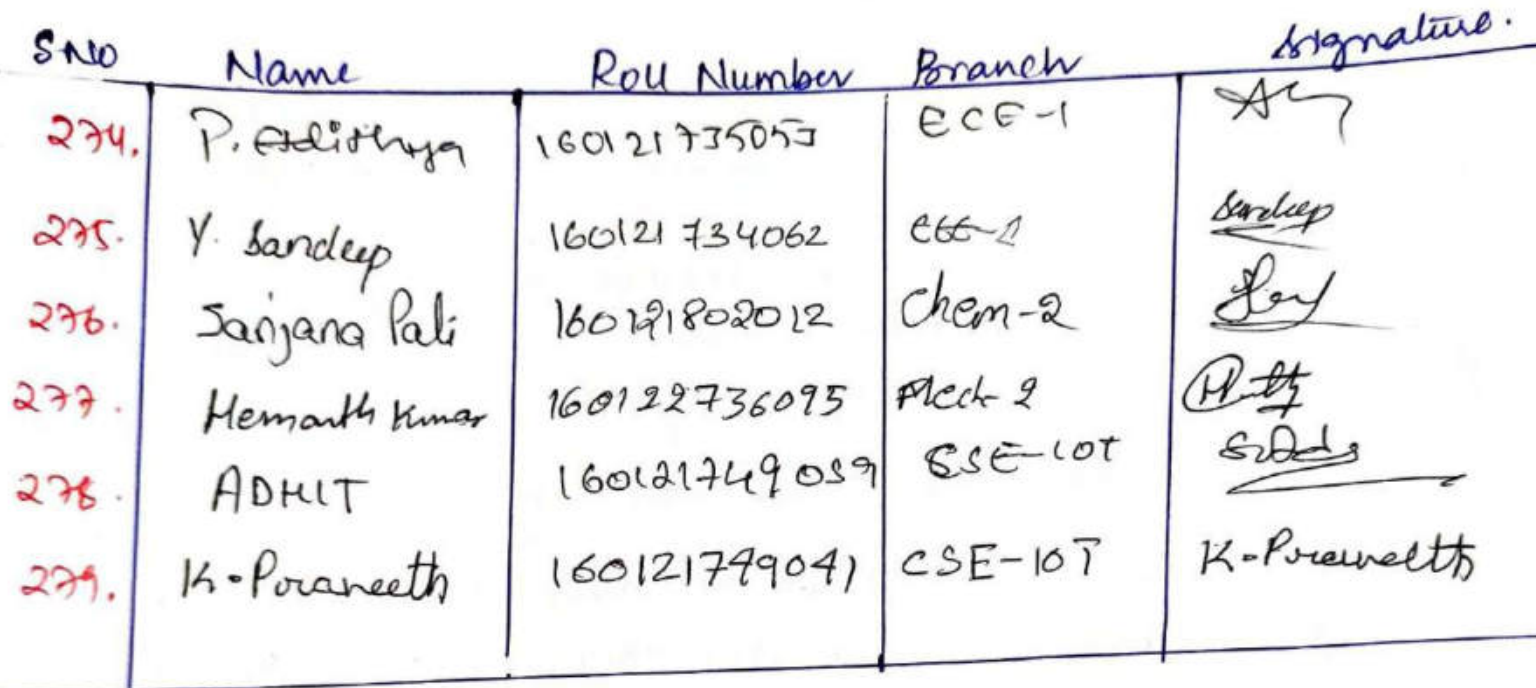 SNO Name Roll Number Branch Signature.
274. P. Adithya 160121735053 ECE-1
275. Y. Sandeep 160121734062 EEE-1 Sandeep
276. Sanjana Pali 160121802012 Chem-2
277. Hemanth Kumar 160122736095 Mech-2
278. ADHIT 160121749059 CSE-IOT
279. K. Praneeth 160121749041 CSE-IOT K. Praneeth